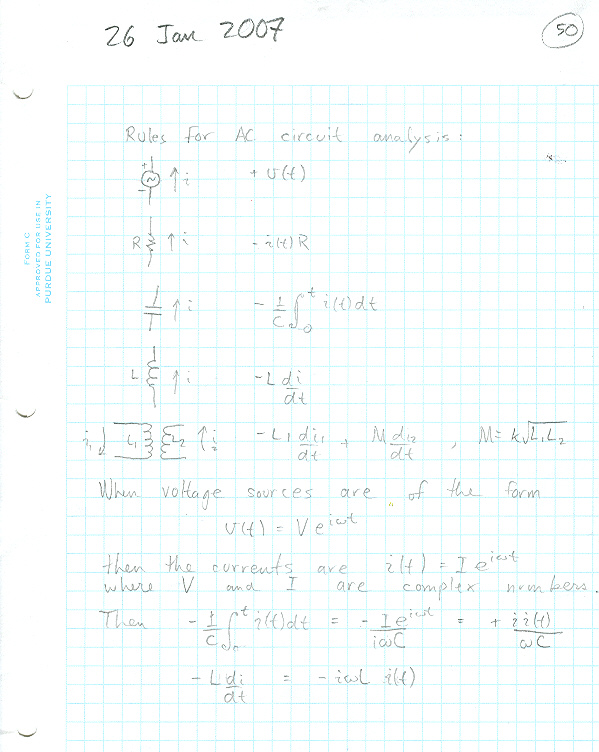 26 Jan 2007
50
FORM C
APPROVED FOR USE IN
PURDUE UNIVERSITY
Rules for AC circuit analysis:
+ - ~ ↑ i + v(t)
R ↑ i - i(t) R
↑ i - 1/C ∫₀ᵗ i(t) dt
L ↑ i - L di/dt
i₁ ↓ L₁ L₂ ↑ i₂ - L₁ di₁/dt + M di₂/dt , M = k√L₁L₂
When voltage sources are of the form
v(t) = V e^{iωt}
then the currents are i(t) = I e^{iωt}
where V and I are complex numbers.
Then - 1/C ∫₀ᵗ i(t) dt = - I e^{iωt}/iωC = + i i(t)/ωC
- L di/dt = - iωL i(t)